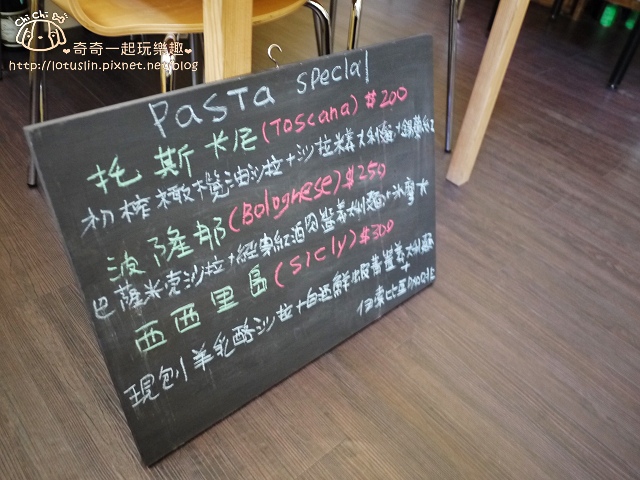 Chi Chi Do
奇奇一起玩樂趣
http://lotuslin.pixnet.net/blog
Pasta special
托斯卡尼 (Toscana) $200
初榨橄欖油沙拉+沙拉米義大利麵+錫蘭紅
波隆那 (Bolognese) $250
巴薩米克沙拉+經典紅酒肉醬義大利麵+冰摩卡
西西里島 (Sicly) $300
現刨羊乳酪沙拉+白酒鮮蝦青醬義大利麵
+
伊索比亞